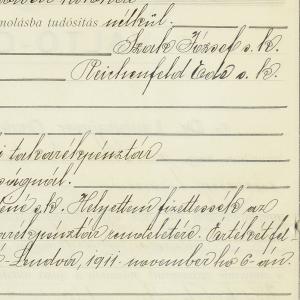 molásba tudósítás nélkül.
Szark József s. k.
Reichenfeld Ede s. k.
i takarékpénztár
ságnál.
né s. k. Helyettem fizettessék az
arékpénztár rendeletére. Értéket fel
Lendva, 1911. november hó 6-án.